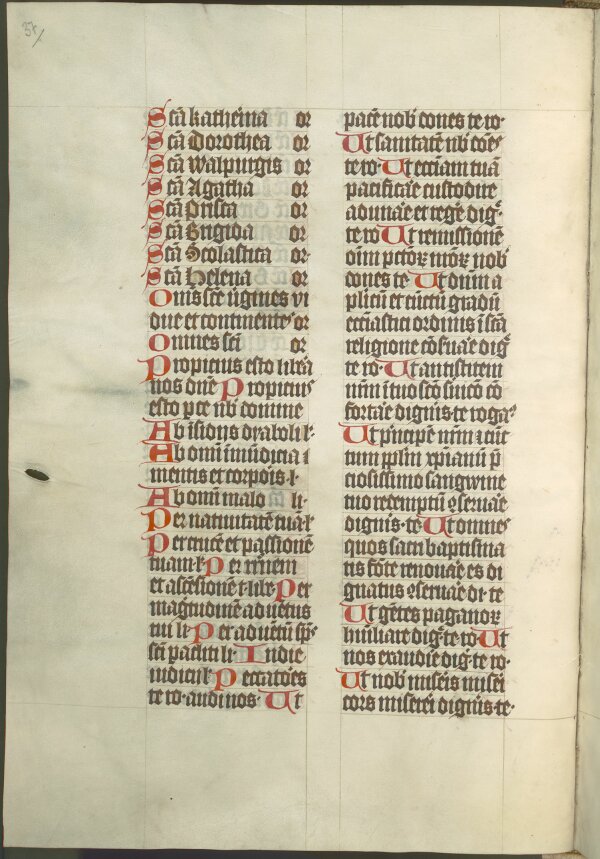 37
Sca katherina or
Sca Dorothea or
Sca Walpurgis or
Sca Agatha or
Sca Prisca or
Sca Brigida or
Sca Scolastica or
Sca Helena or
Omis sce v̄gines vi
due et continentes or
Omnes sci or
Propicius esto libera
nos dn̄e Propicius
esto p̄ce nb̄ domine
Ab isidijs dyaboli l·
Ab omni īmūdicia
mentis et corpis l·
Ab omni malo li·
Per natiuitatē tuā l·
Per crucē et passionē
tuam l· Per
et ascēsionē t· lib̄e Per
magitudinē aduētus
tui li· Per aduētū sp̄·
sc̄i pacliti li· In die
iudicij l· Peccatores
te ro· audi nos· Ut
pacē nob̄ dones te ro·
Ut sanitatē nb̄ dōes
te ro· Ut eccl̄iam tuā
pacificare custodire
adunare et rege dig
te ro Ut remissionē
oīm pctōꝝ nr̄oꝝ nob̄
dones te Ut dn̄m a
plicū et cūctū gradū
eccl̄iastici ordinis ī scā
religione cōs̄uare dig
te ro· Ut antistitem
nr̄m ī tuo scō s̄uicō cō
fortare digneris te roga
Ut p̄ncipē nr̄m ⁊ cūc
tum pplm xp̄ianū p̄
ciosissimo sangwine
tuo redemptū ꝯseruare
digneris· te Ut omnes
quos sacri baptisma
tis fōte renouare es di
gnatus ꝯseruare di· te
Ut gētes paganoꝝ
humiliare dig· te ro· Ut
nos exaudire dig· te ro·
Ut nob̄ miseris miseri
cors misereri digneris te·